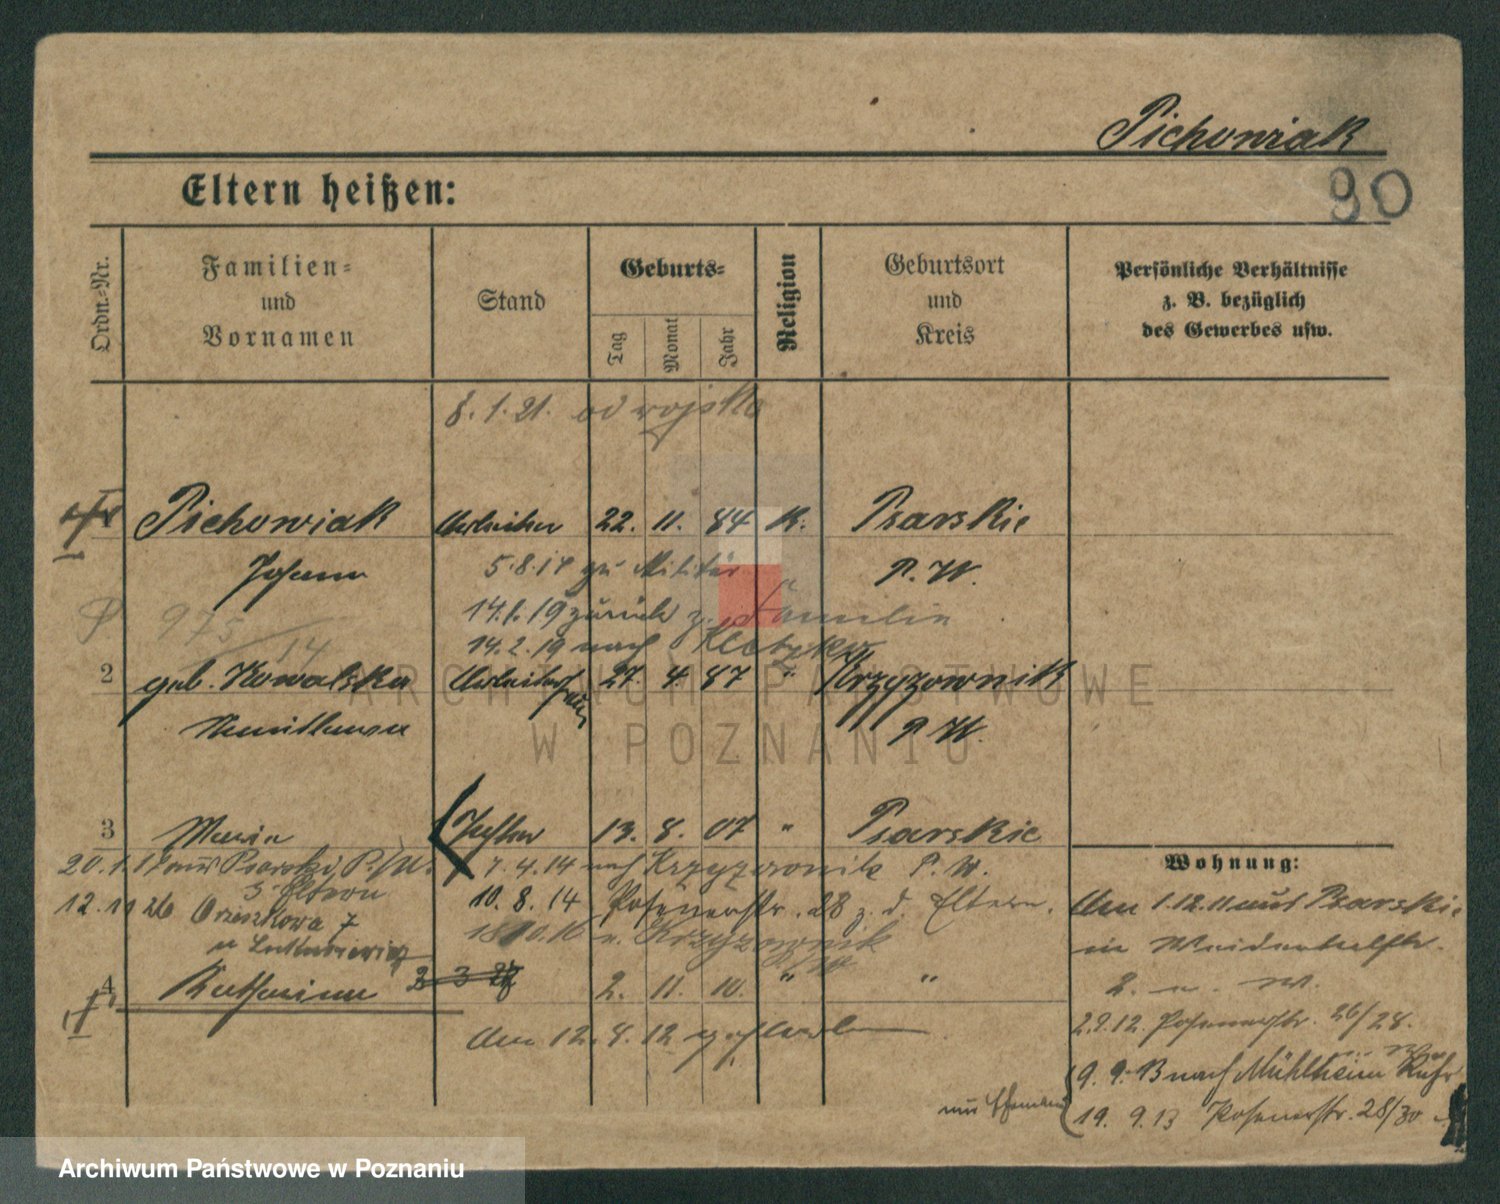 Pichowiak
90
Eltern heißen:
Ordn.-Nr.
Familien-
und
Vornamen
Stand
Geburts-
Tag
Monat
Jahr
Religion
Geburtsort
und
Kreis
Persönliche Verhältnisse
z. B. bezüglich
des Gewerbes usw.
8. 1. 21. od wojska
Pichowiak Arbeiter 22. 11. 84 K. Psarskie
Johann 5.8.14 zu Militär P. W.
14.1.19 zurück z. Familie
975/14
14.2.19 nach Kletzko
2 geb. Kowalska Arbeiterfrau 27. 4. 87 " Krzyzownik
P. W.
3 Maria Tochter 13. 8. 07 " Psarskie
20.1.17 aus Psarski P./W. 7.4.14 nach Krzyzownik P. W.
z. Eltern
10.8.14 Posenerstr. 28 z. d. Eltern.
12.11 26 Orzeszkowa 7
n. Krzyzownik
4 Katharina 2. 11. 10. " "
Am 12. 8. 12 gestorben
Wohnung:
Am 1.12.11 aus Psarskie
in
2. n. W.
2.9.12. Posenerstr. 26/28.
9. 9. 13 nach Mühlheim Ruhr
19. 9. 13 Posenerstr. 28/30
ARCHIWUM PAŃSTWOWE
W POZNANIU
Archiwum Państwowe w Poznaniu